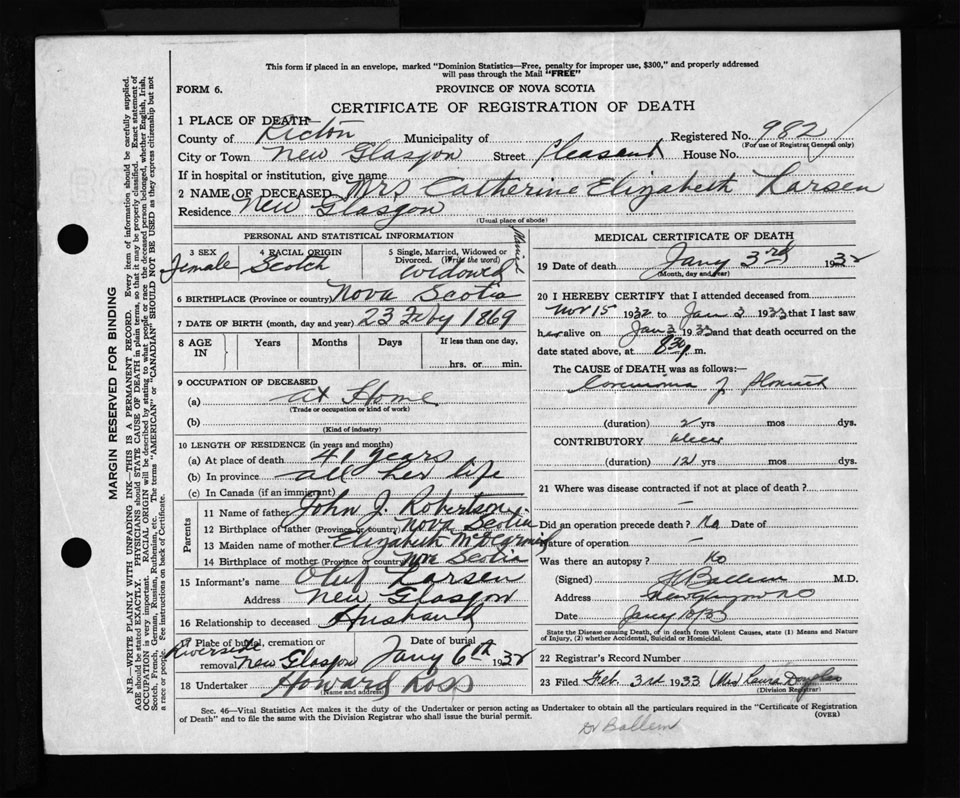 This form if placed in an envelope, marked "Dominion Statistics—Free, penalty for improper use, $300," and properly addressed
will pass through the Mail "FREE"
FORM 6. PROVINCE OF NOVA SCOTIA
CERTIFICATE OF REGISTRATION OF DEATH
1 PLACE OF DEATH
County of Pictou Municipality of Registered No. 982
(For use of Registrar General only)
City or Town New Glasgow Street Pleasant House No.
If in hospital or institution, give name
2 NAME OF DECEASED Mrs Catherine Elizabeth Larsen
Residence New Glasgow
(Usual place of abode)
PERSONAL AND STATISTICAL INFORMATION
3 SEX 4 RACIAL ORIGIN 5 Single, Married, Widowed or
Divorced. (Write the word)
Female Scotch widowed Married
6 BIRTHPLACE (Province or country) Nova Scotia
7 DATE OF BIRTH (month, day and year) 23 Feby 1869
8 AGE IN Years Months Days If less than one day,
hrs. or min.
9 OCCUPATION OF DECEASED
(a) at Home
(Trade or occupation or kind of work)
(b)
(Kind of industry)
10 LENGTH OF RESIDENCE (in years and months)
(a) At place of death 41 years
(b) In province all her life
(c) In Canada (if an immigrant)
Parents
11 Name of father John J. Robertson
12 Birthplace of father (Province or country) Nova Scotia
13 Maiden name of mother Elizabeth
14 Birthplace of mother (Province or country) Nova Scotia
15 Informant's name Oluf Larsen
Address New Glasgow
16 Relationship to deceased Husband
17 Place of burial, cremation or Date of burial
Riverside
removal New Glasgow Jany 6th 1932
18 Undertaker Howard Ross
(Name and address)
MEDICAL CERTIFICATE OF DEATH
19 Date of death Jany 3rd 1932
(Month, day and year)
20 I HEREBY CERTIFY that I attended deceased from
Nov 15 1932 to Jan 2 1933 that I last saw
her alive on Jan 3 1933 and that death occurred on
date stated above, at 8.30 p. m.
The CAUSE of DEATH was as follows:—
Carcinoma of Stomach
(duration) 2 yrs mos dys.
CONTRIBUTORY ulcer
(duration) 12 yrs mos dys.
21 Where was disease contracted if not at place of death?
—
Did an operation precede death? No Date of
Nature of operation —
Was there an autopsy? No
(Signed) Ballem M.D.
Address New Glasgow N S
Date Jany 10/33
State the Disease causing Death, or in death from Violent Causes, state (1) Means and Nature
of Injury, (2) whether Accidental, Suicidal or Homicidal.
22 Registrar's Record Number
23 Filed Feb. 3rd 1933 Mrs Laura Douglas
(Division Registrar)
Sec. 46—Vital Statistics Act makes it the duty of the Undertaker or person acting as Undertaker to obtain all the particulars required in the "Certificate of Registration
of Death" and to file the same with the Division Registrar who shall issue the burial permit. (OVER)
Dr Ballem
MARGIN RESERVED FOR BINDING
N.B.—WRITE PLAINLY WITH UNFADING INK—THIS IS A PERMANENT RECORD. Every item of information should be carefully supplied.
AGE should be stated EXACTLY. PHYSICIANS should STATE CAUSE OF DEATH in plain terms, so that it may be properly classified. Exact statement of
OCCUPATION is very important. RACIAL ORIGIN will be described by stating to what people or race the deceased person belonged, whether English, Irish,
Scotch, French, German, Russian, Ruthenian, etc. The terms "AMERICAN" or "CANADIAN" SHOULD NOT BE USED as they express citizenship but not
a race or people. See instructions on back of Certificate.